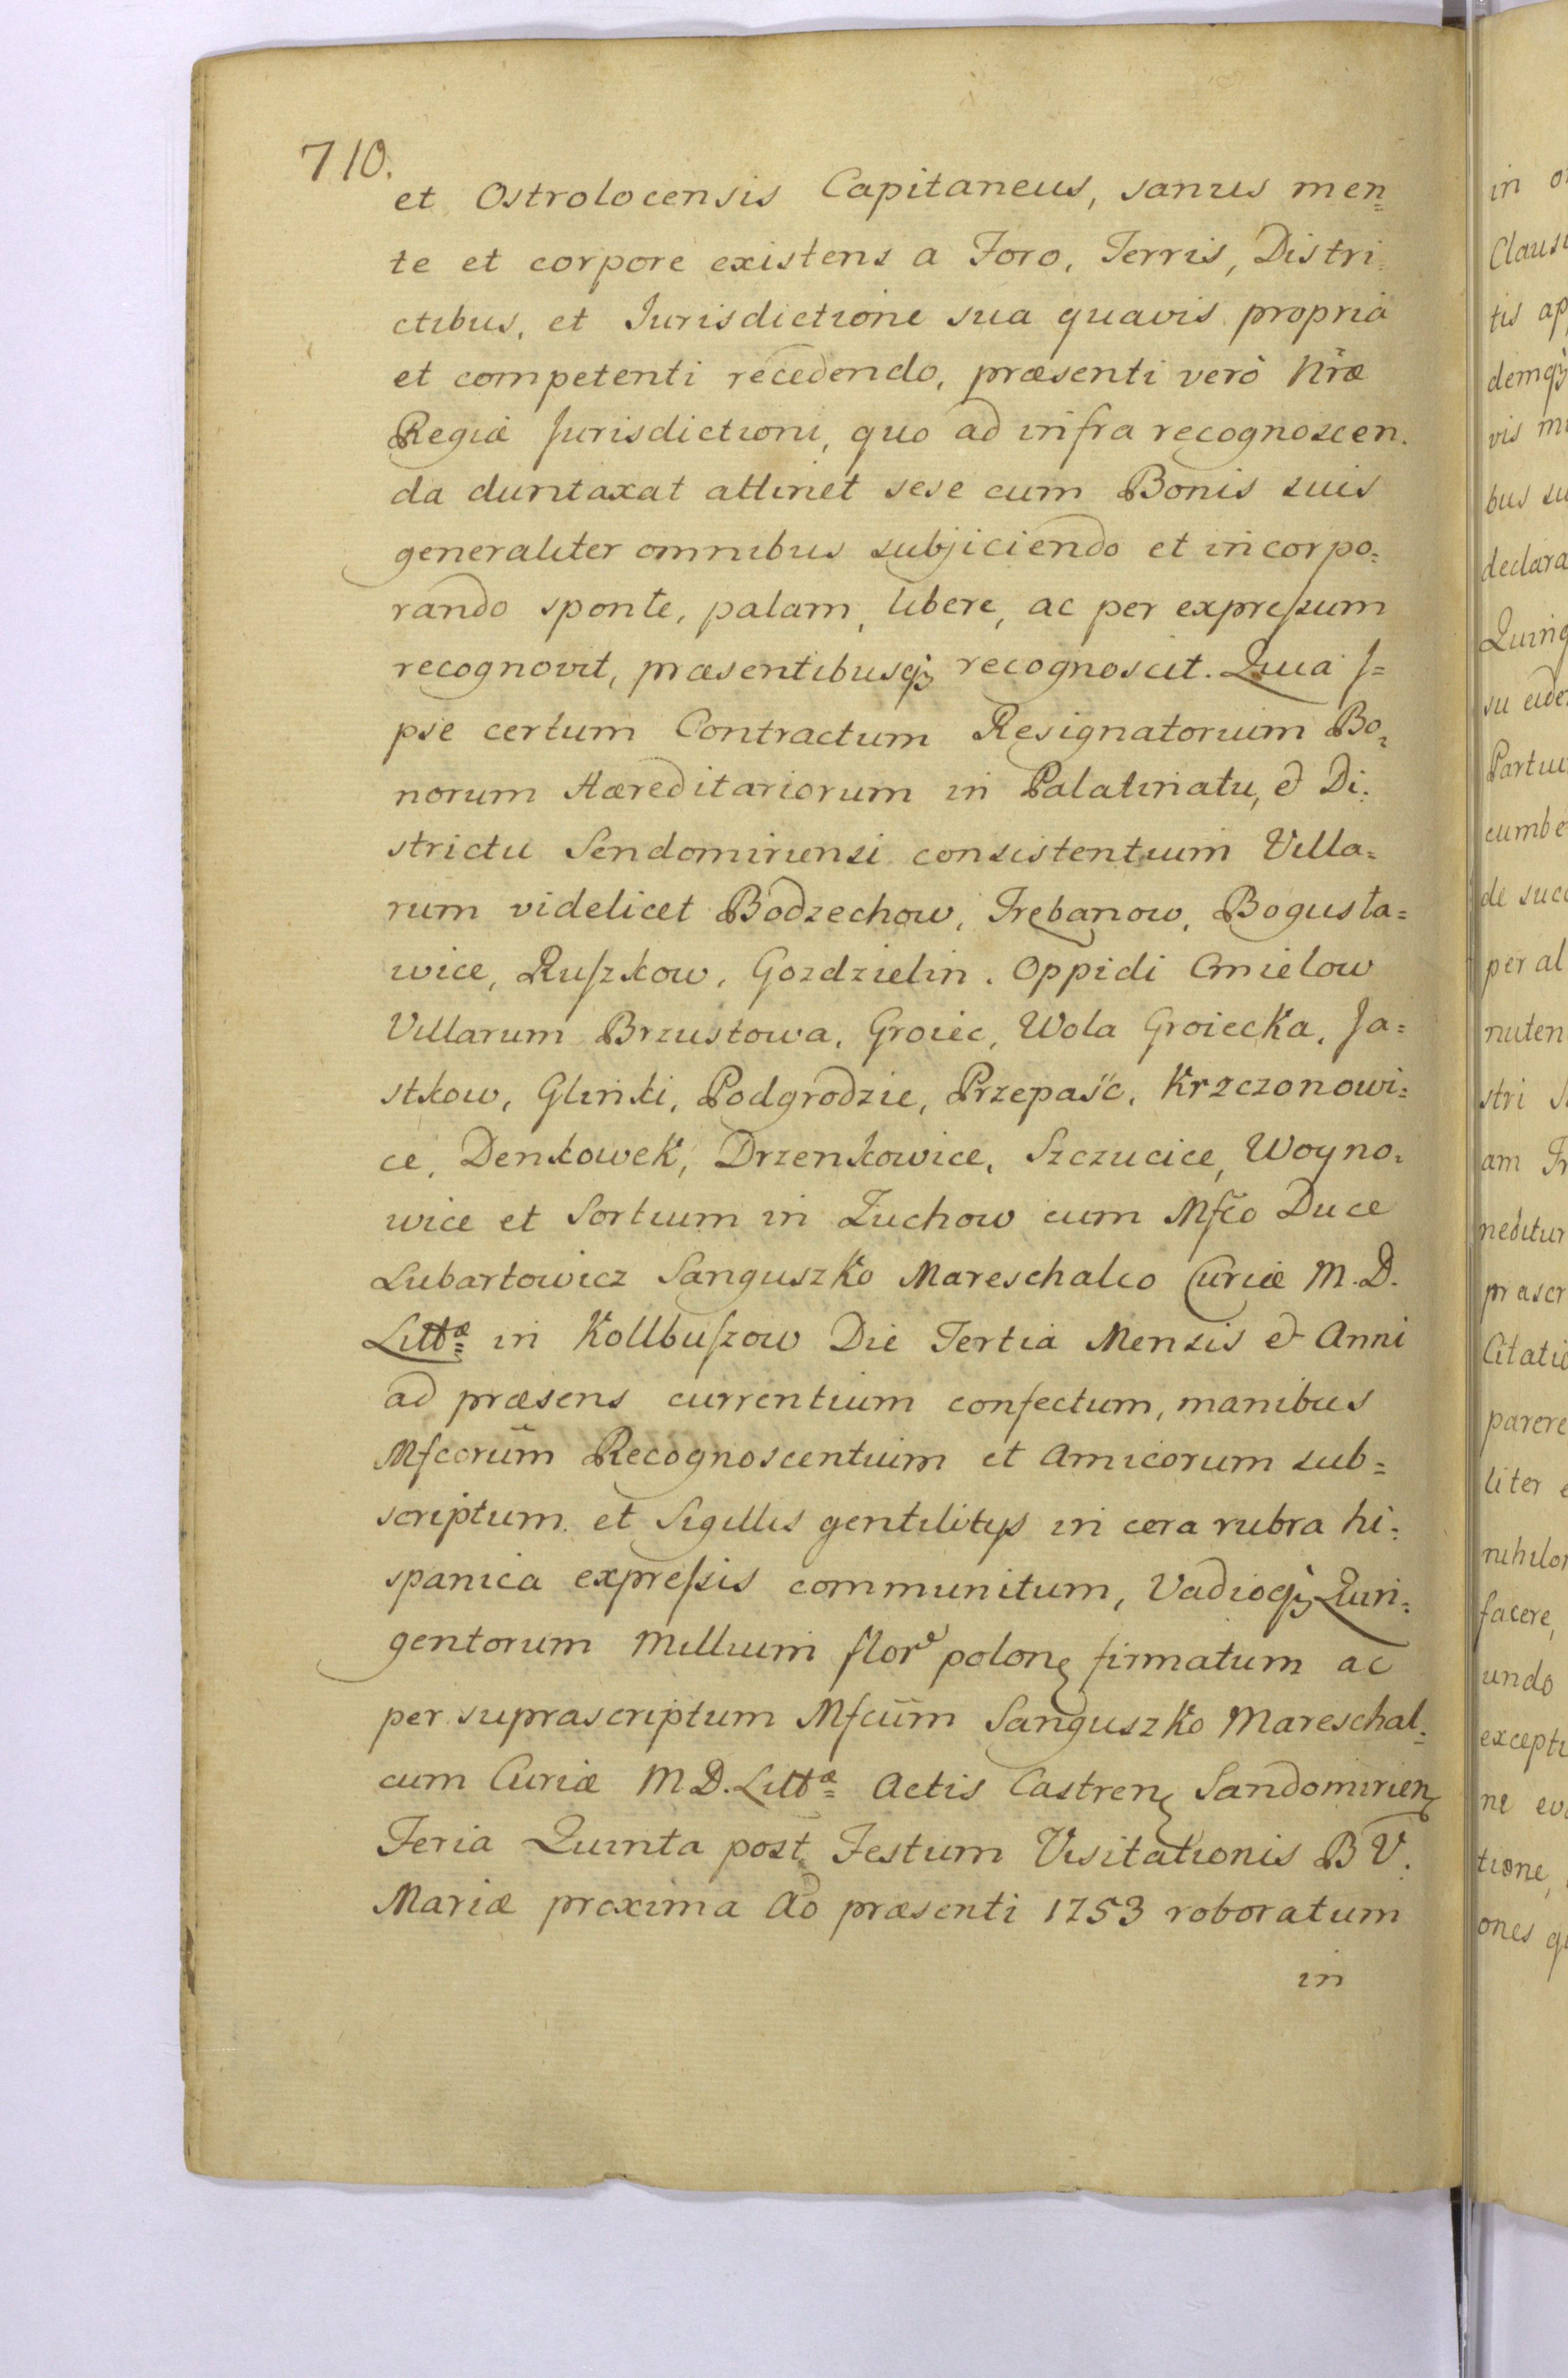 710.
et Ostrolocensis Capitaneus, sanus men=
te et corpore existens a Foro, Terris, Distri=
ctibus, et Jurisdictione sua quavis propria
et competenti recedendo, præsenti verò Nr̃æ
Regiæ Jurisdictioni, quo ad infra recognoscen.
da duntaxat attinet sese cum Bonis suis
generaliter omnibus subjiciendo et incorpo=
rando sponte, palam, libere, ac per expreſsum
recognovit, præsentibusq₃ recognoscit. Quia J=
pse certum Contractum Resignatorium Bo=
norum Hæreditariorum in Palatinatu, & Di=
strictu Sendomiriensi consistentium Villa=
rum videlicet Bodzechow, Trębanow, Bogusła=
wice, Ruſzkow, Gozdzielin. Oppidi Cmielow
Villarum Brzustowa, Groiec, Wola Groiecka, Ja=
stkow, Glinki, Podgrodzie, Przepaść, Krzczonowi=
ce, Denkowek, Drzenkowice, Szczucice, Woyno=
wice et Sortium in Zuchow cum Mfc̃o Duce
Lubartowicz Sanguszko Mareschalco Curiæ M. D.
Littæ in Kollbuſzow Die Tertia Mensis & Anni
ad præsens currentium confectum, manibus
Mfcorum̃ Recognoscentium et Amicorum sub=
scriptum et Sigillis gentilitijs in cera rubra hi=
spanica expreſsis communitum, Vadioq₃ Quin=
gentorum Millium flore polonę firmatum ac
per suprascriptum Mfcum̃ Sanguszko Mareschal=
cum Curiæ M D. Littæ Actis Castrenę Sandomirienę
Feria Quinta post Festum Visitationis B V.
Mariæ proxima Ao præsenti 1753 roboratum
in
in
Clausu
tis ap
demq₃
vis
bus su
declara
Quing
su eide
Partiu
cumbe
de succ
per al
nuten
stri
am
neditur
præscr
Citatio
parere
liter
nihilo
facere,
undo
excepti
ne
tione,
ones